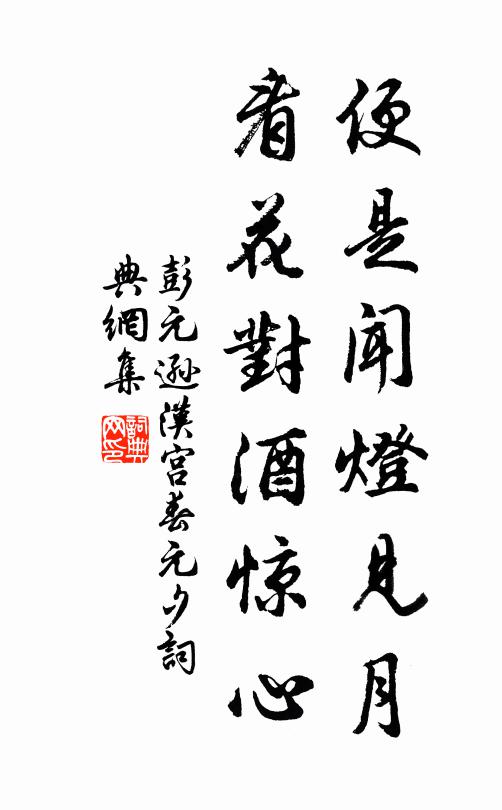 便是聞燈見月
看花對酒惊心
彭元遜漢宮春元夕詞
典網集
詞典网印